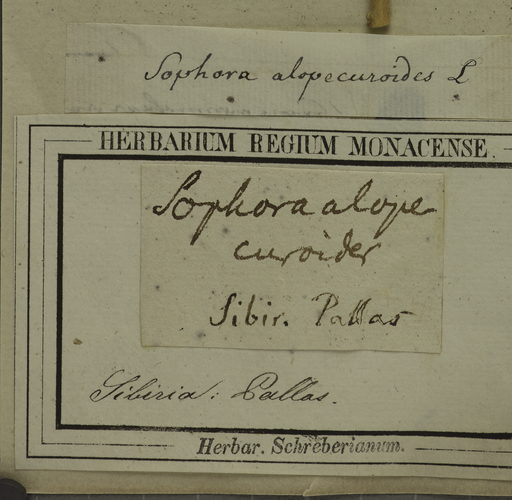 Sophora alopecuroides L
HERBARIUM REGIUM MONACENSE.
Sophora alope
curoides
Sibir. Pallas
Sibiria: Pallas.
Herbar. Schreberianum.